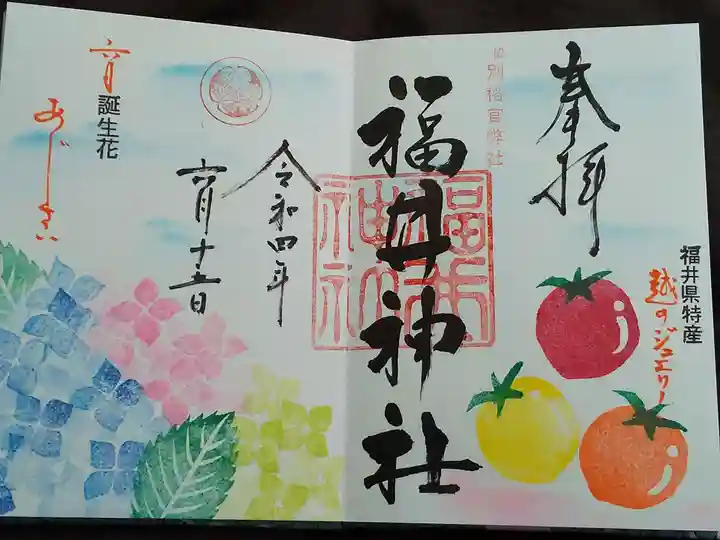 奉拝
福井県特産
越のジュエリー
旧別格官幣社
福井神社
令和四年
六月十五日
六月
誕生花
あじさい